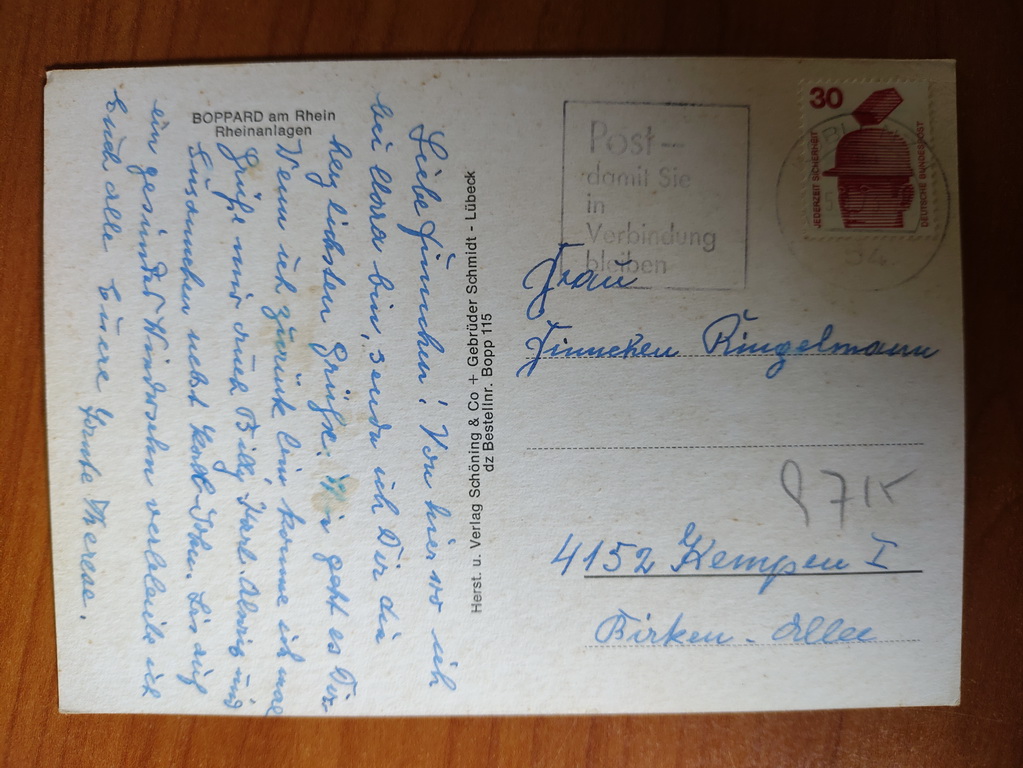 BOPPARD am Rhein
Rheinanlagen
Liebe Finnchen! Von hier wo ich
bei Clara bin, sende ich Dir die
herzlichsten Grüße. Wie geht es Dir
Wenn ich zurück bin, komme ich mal
Grüße mir auch Billy, Karl Alwig und
Susannchen nebst Karl-John. Bis auf
ein gesundes Wiedersehn verbleibe ich
Euch alle Euere Tante Therese.
Herst. u. Verlag Schöning & Co + Gebrüder Schmidt - Lübeck
dz Bestellnr. Bopp 115
Post -
damit Sie
in
Verbindung
bleiben
30
JEDERZEIT SICHERHEIT
DEUTSCHE BUNDESPOST
Frau
Finnchen Ringelmann
4152 Kempen I
Birken-Allee